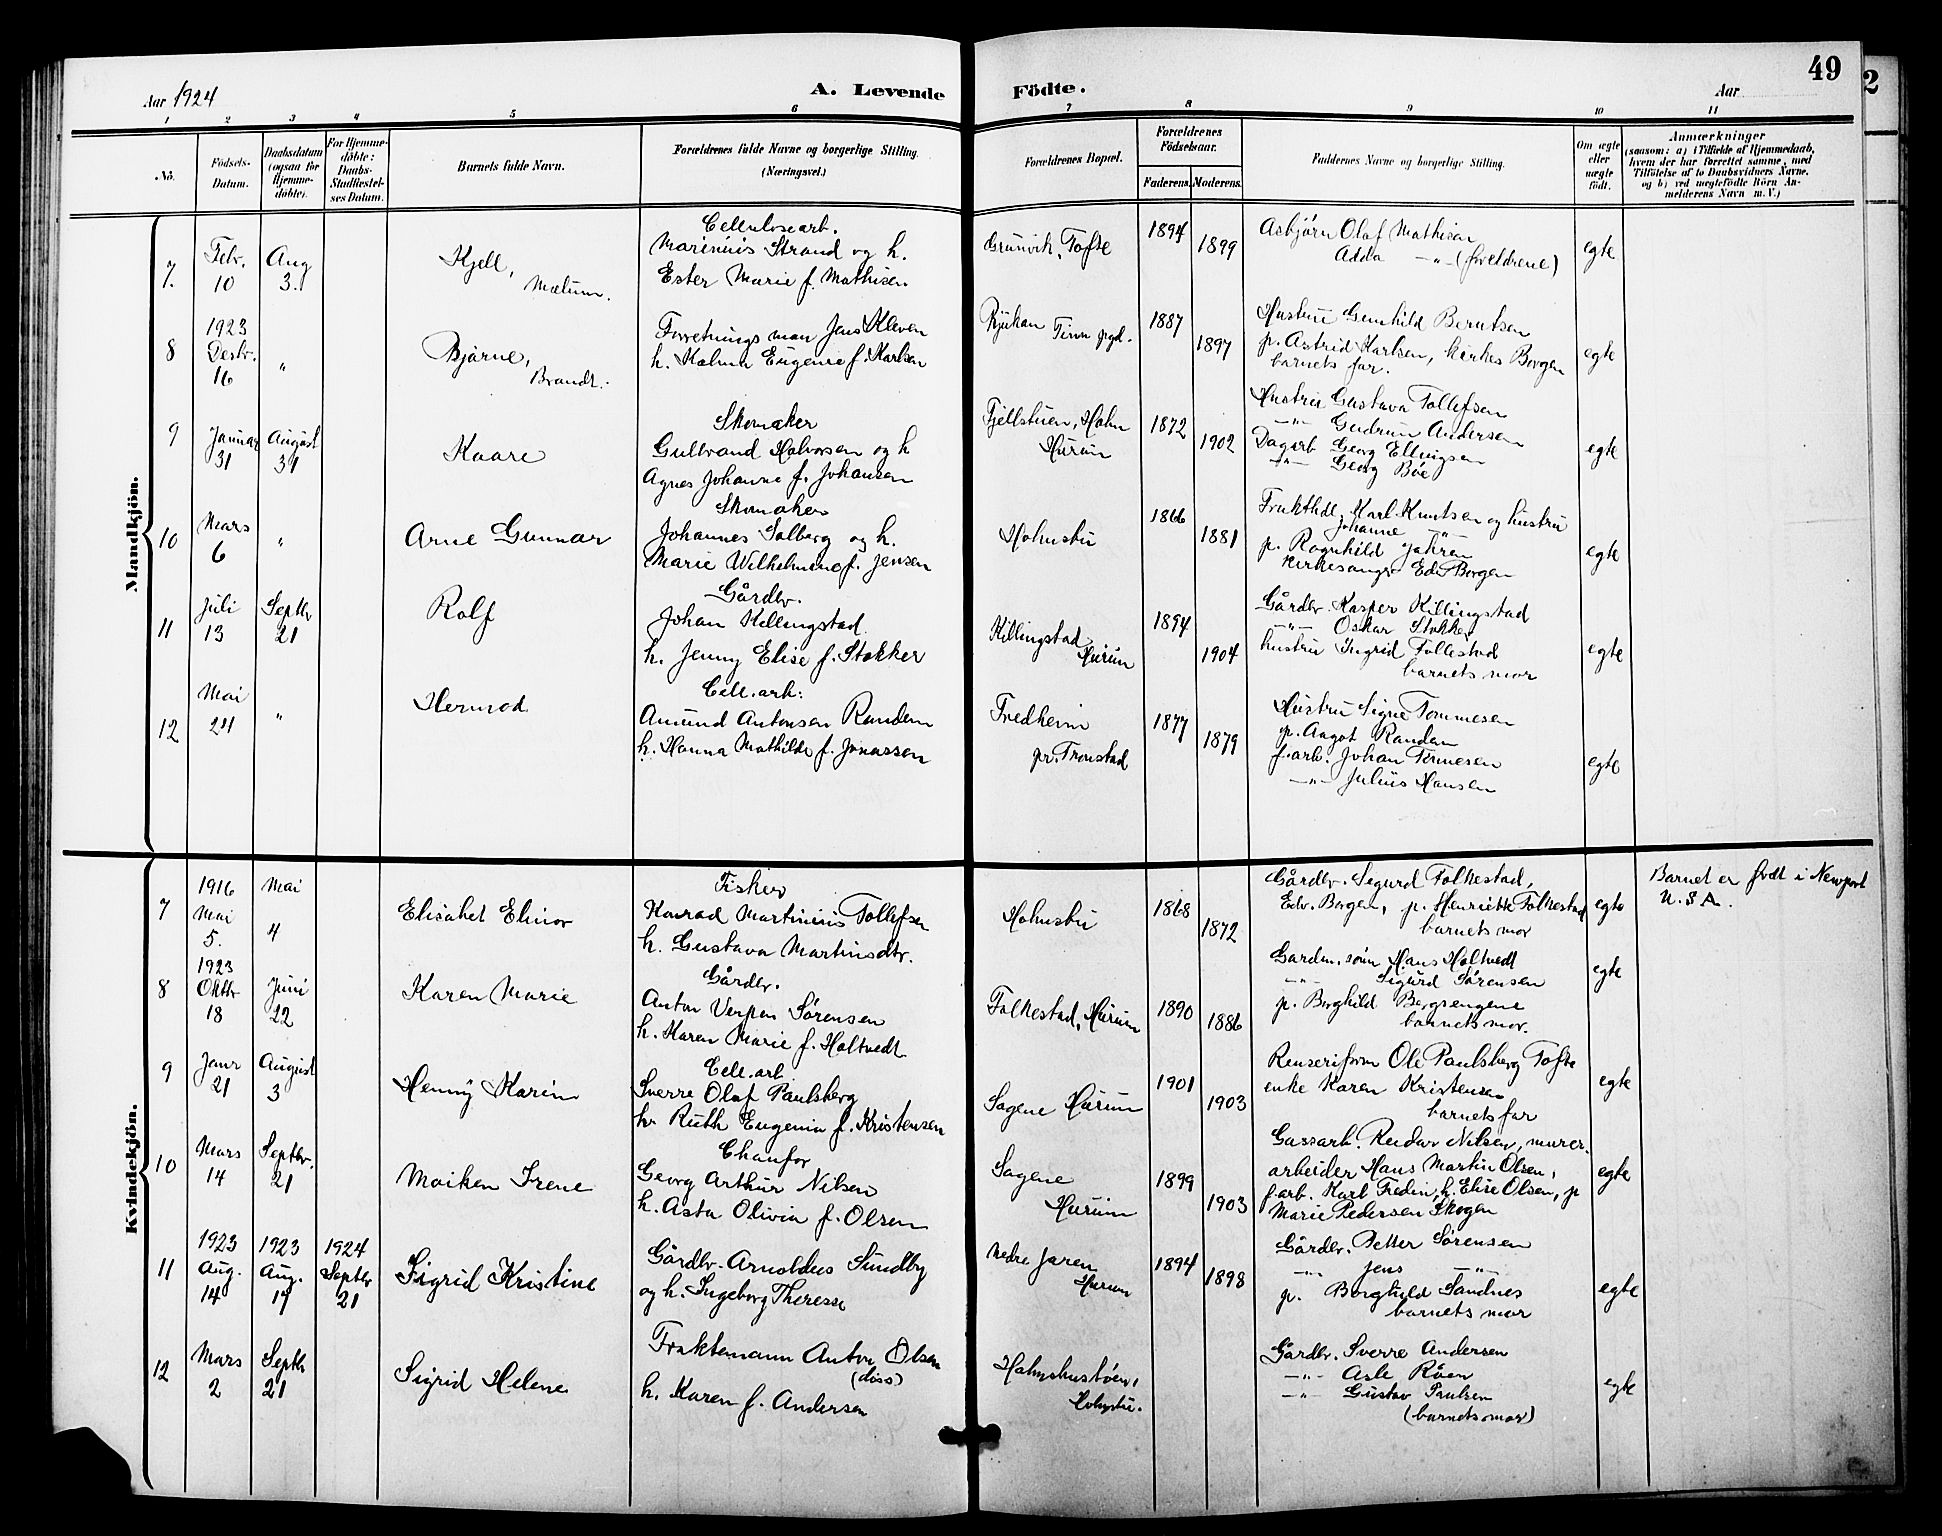 49
2
Aar 1924
A. Levende
Födte.
Aar
1 2 3 4 5 6 7 8 9 10 11
No.
Födsels-Datum.
Daabsdatum (ogsaa for Hjemme-döbte).
For Hjemme-döbte: Daabs-Stadfæstel-ses Datum.
Barnets fulde Navn.
Forældrenes fulde Navne og borgerlige Stilling. (Næringsvei.)
Forældrenes Bopæl.
Forældrenes Födselsaar.
Faderens. Moderens.
Faddernes Navne og borgerlige Stilling.
Om ægte eller uægte födt.
Anmærkninger
(saasom: a) i Tilfælde af Hjemmedaab,
hvem der har forrettet samme, med
Tilföielse af to Daabsvidners Navne,
og b) ved uægtefödte Börn An-
melderens Navn m. V.)
Mandkjön.
7. Febr. 10
Aug 3.
Kjell,
Mælum.
Cellulosearb.
Marinius Strand og h.
Ester Marie f. Mathisen
Grunvik, Tofte
1894 1899
Asbjørn Olaf Mathisen
Adda —"— (foreldrene)
egte
8 1923 Desbr. 16
"
Bjarne,
Brandt.
Forretningsman Jens Kleven
h. Halma Eugenie f. Karlsen
Rjukan Tinn pgd.
1887 1897
Hustru Gunhild Berntsen
p. Astrid Karlsen, kirkes Borgen
barnets far.
egte
9 Januar 31
August 31
Kaare
Skomaker
Gulbrand Halvorsen og h
Agnes Johanne f. Johansen
Fjellstuen, Holm
Hurum
1872 1902
Hustru Gustava Tollefsen
—"— Gudrun Andersen
Dagarb Georg Ellingsen
—"— Georg Bøe
egte
10 Mars 6
"
Arne Gunnar
Skomaker
Johannes Solberg og h.
Marie Wilhelmine f. Jensen
Holmsbu
1866 1881
Frukthdl. Karl Knutsen og hustru
Johanne —"—
p. Ragnhild Jahren
Kirkesanger Edv Borgen
egte
11 Juli 13
Septbr 21
Rolf
Gårdbr.
Johan Killingstad
h. Jenny Elise f. Stokker
Killingstad
Hurum
1894 1904
Gårdbr. Kasper Killingstad
—"— Oskar Stokker
hustru Ingrid Follestad
barnets mor
egte
12 Mai 24
"
Hermod
Cell. arb:
Amund Antonsen Randem
h. Hanna Mathilde f. Jonassen
Fredheim
pr. Tronstad
1877 1879
Hustru Signe Tommesen
p. Aagot Randem
f.arb. Johan Tommesen
—"— Julius Hansen
egte
Kvindekjön.
7 1916 Mai 5.
Mai 4
Elisabet Elinor
Fisker
Konrad Martinius Tollefsen
h. Gustava Martinsdtr.
Holmsbu
1868 1872
Gårdbr. Sigurd Folkestad,
Edv. Borgen, p. Henriette Folkestad
barnets mor
egte
Barnet er født i Newport
U.S.A.
8 1923 Oktbr 18
Juni 22
Karen Marie
Gårdbr.
Anton Verpen Sørensen
h. Karen Marie f. Holtvedt
Folkestad, Hurum
1890 1886
Gardm. sønn Hans Holtvedt
—"— Sigurd Sørensen
p. Borghild Bergsengene
barnets mor.
egte
9 Janr 21
August 3
Henny Karin
Cell. arb
Sverre Olaf Paulsberg
h. Ruth Eugenia f. Kristensen
Sagene Hurum
1901 1903
Renseriform Ole Paulsberg Tofte
enke Karen Kristensen
barnets far
egte
10 Mars 14
Septbr. 21
Maiken Irene
Chaufør
Georg Arthur Nilsen
h. Asta Olivia f. Olsen
Sagene
Hurum
1899 1903
Gassarb. Reidar Nilsen, murer.
arbeider Hans Martin Olsen,
f.arb. Karl Fredin, h. Elise Olsen, p
Marie Pedersen Skogen
egte
11 1923 Aug. 14
1923 Aug. 17
1924 Septbr 21
Sigrid Kristine
Gårdbr. Arnoldus Sundby
og h. Ingeborg Therese
Nedre Jaren
Hurum
1894 1898
Gårdbr. Petter Sørensen
—"— Jens —"—
p. Borghild Sandnes
barnets mor
egte
12 Mars 2
Septbr 21
Sigrid Helene
Fraktemann Anton Olsen
(diss)
h. Karen f. Andersen
Holmsbu.
Gårdbr. Sverre Andersen
—"— Asle Røen
—"— Gustav Paulsen
(barnets mor)
egte